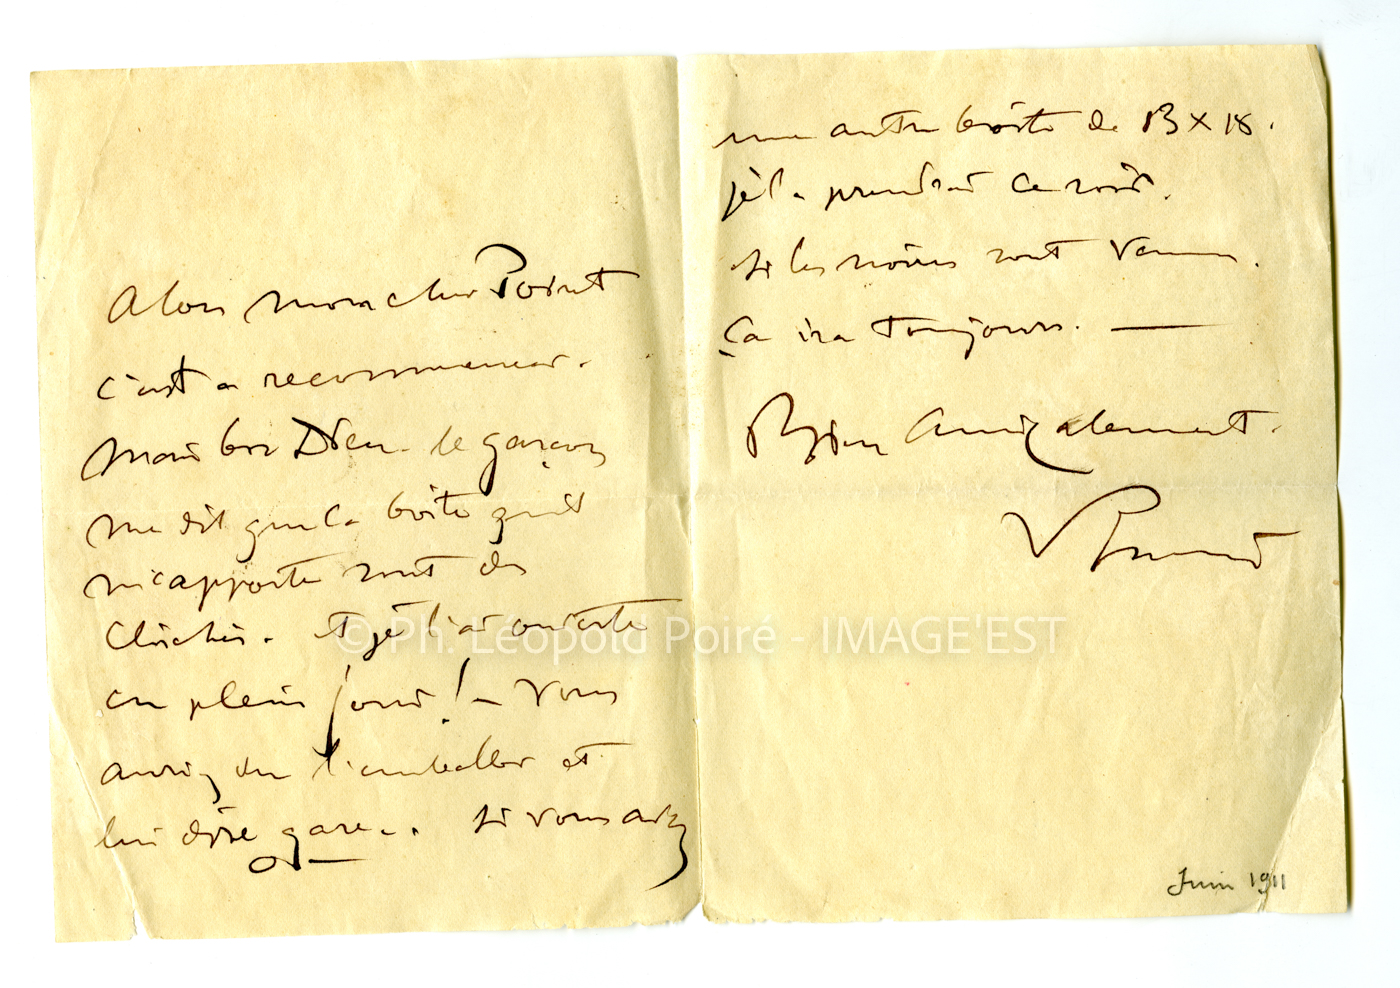 Alors mon cher Poirét
c'est a recommencer.
Mais bon Dieu. le garçon
me dit que la boite qu'il
m'apporte sont des
Clichés. et je l'ai ouverte
en plein jour! – Vous
auriez du l'emballer et
lui dire gare –.
si vous avez
une autre boite de 13 X 18.
je la prendrai ce soir.
si les noires sont venues.
ça ira toujours. —
Bien amicalement.
V Prouvé
Juin 1911
© Ph. Léopold Poiré - IMAGE'EST